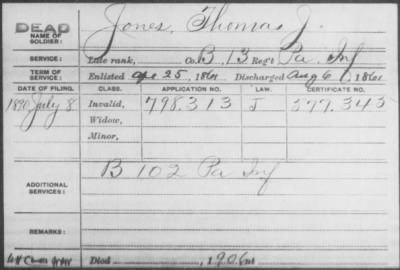 DEAD
NAME OF SOLDIER: Jones, Thomas J.
SERVICE: Late rank, Co. B, 13 Reg't Pa. Inf
TERM OF SERVICE: Enlisted Apr 25, 1861 Discharged Aug 6, 1861
DATE OF FILING. CLASS. APPLICATION NO. LAW. CERTIFICATE NO.
1890 July 8 Invalid, 798.313 J 577.345
Widow,
Minor,
ADDITIONAL SERVICES: B 102 Pa Inf
REMARKS:
Died , 1906